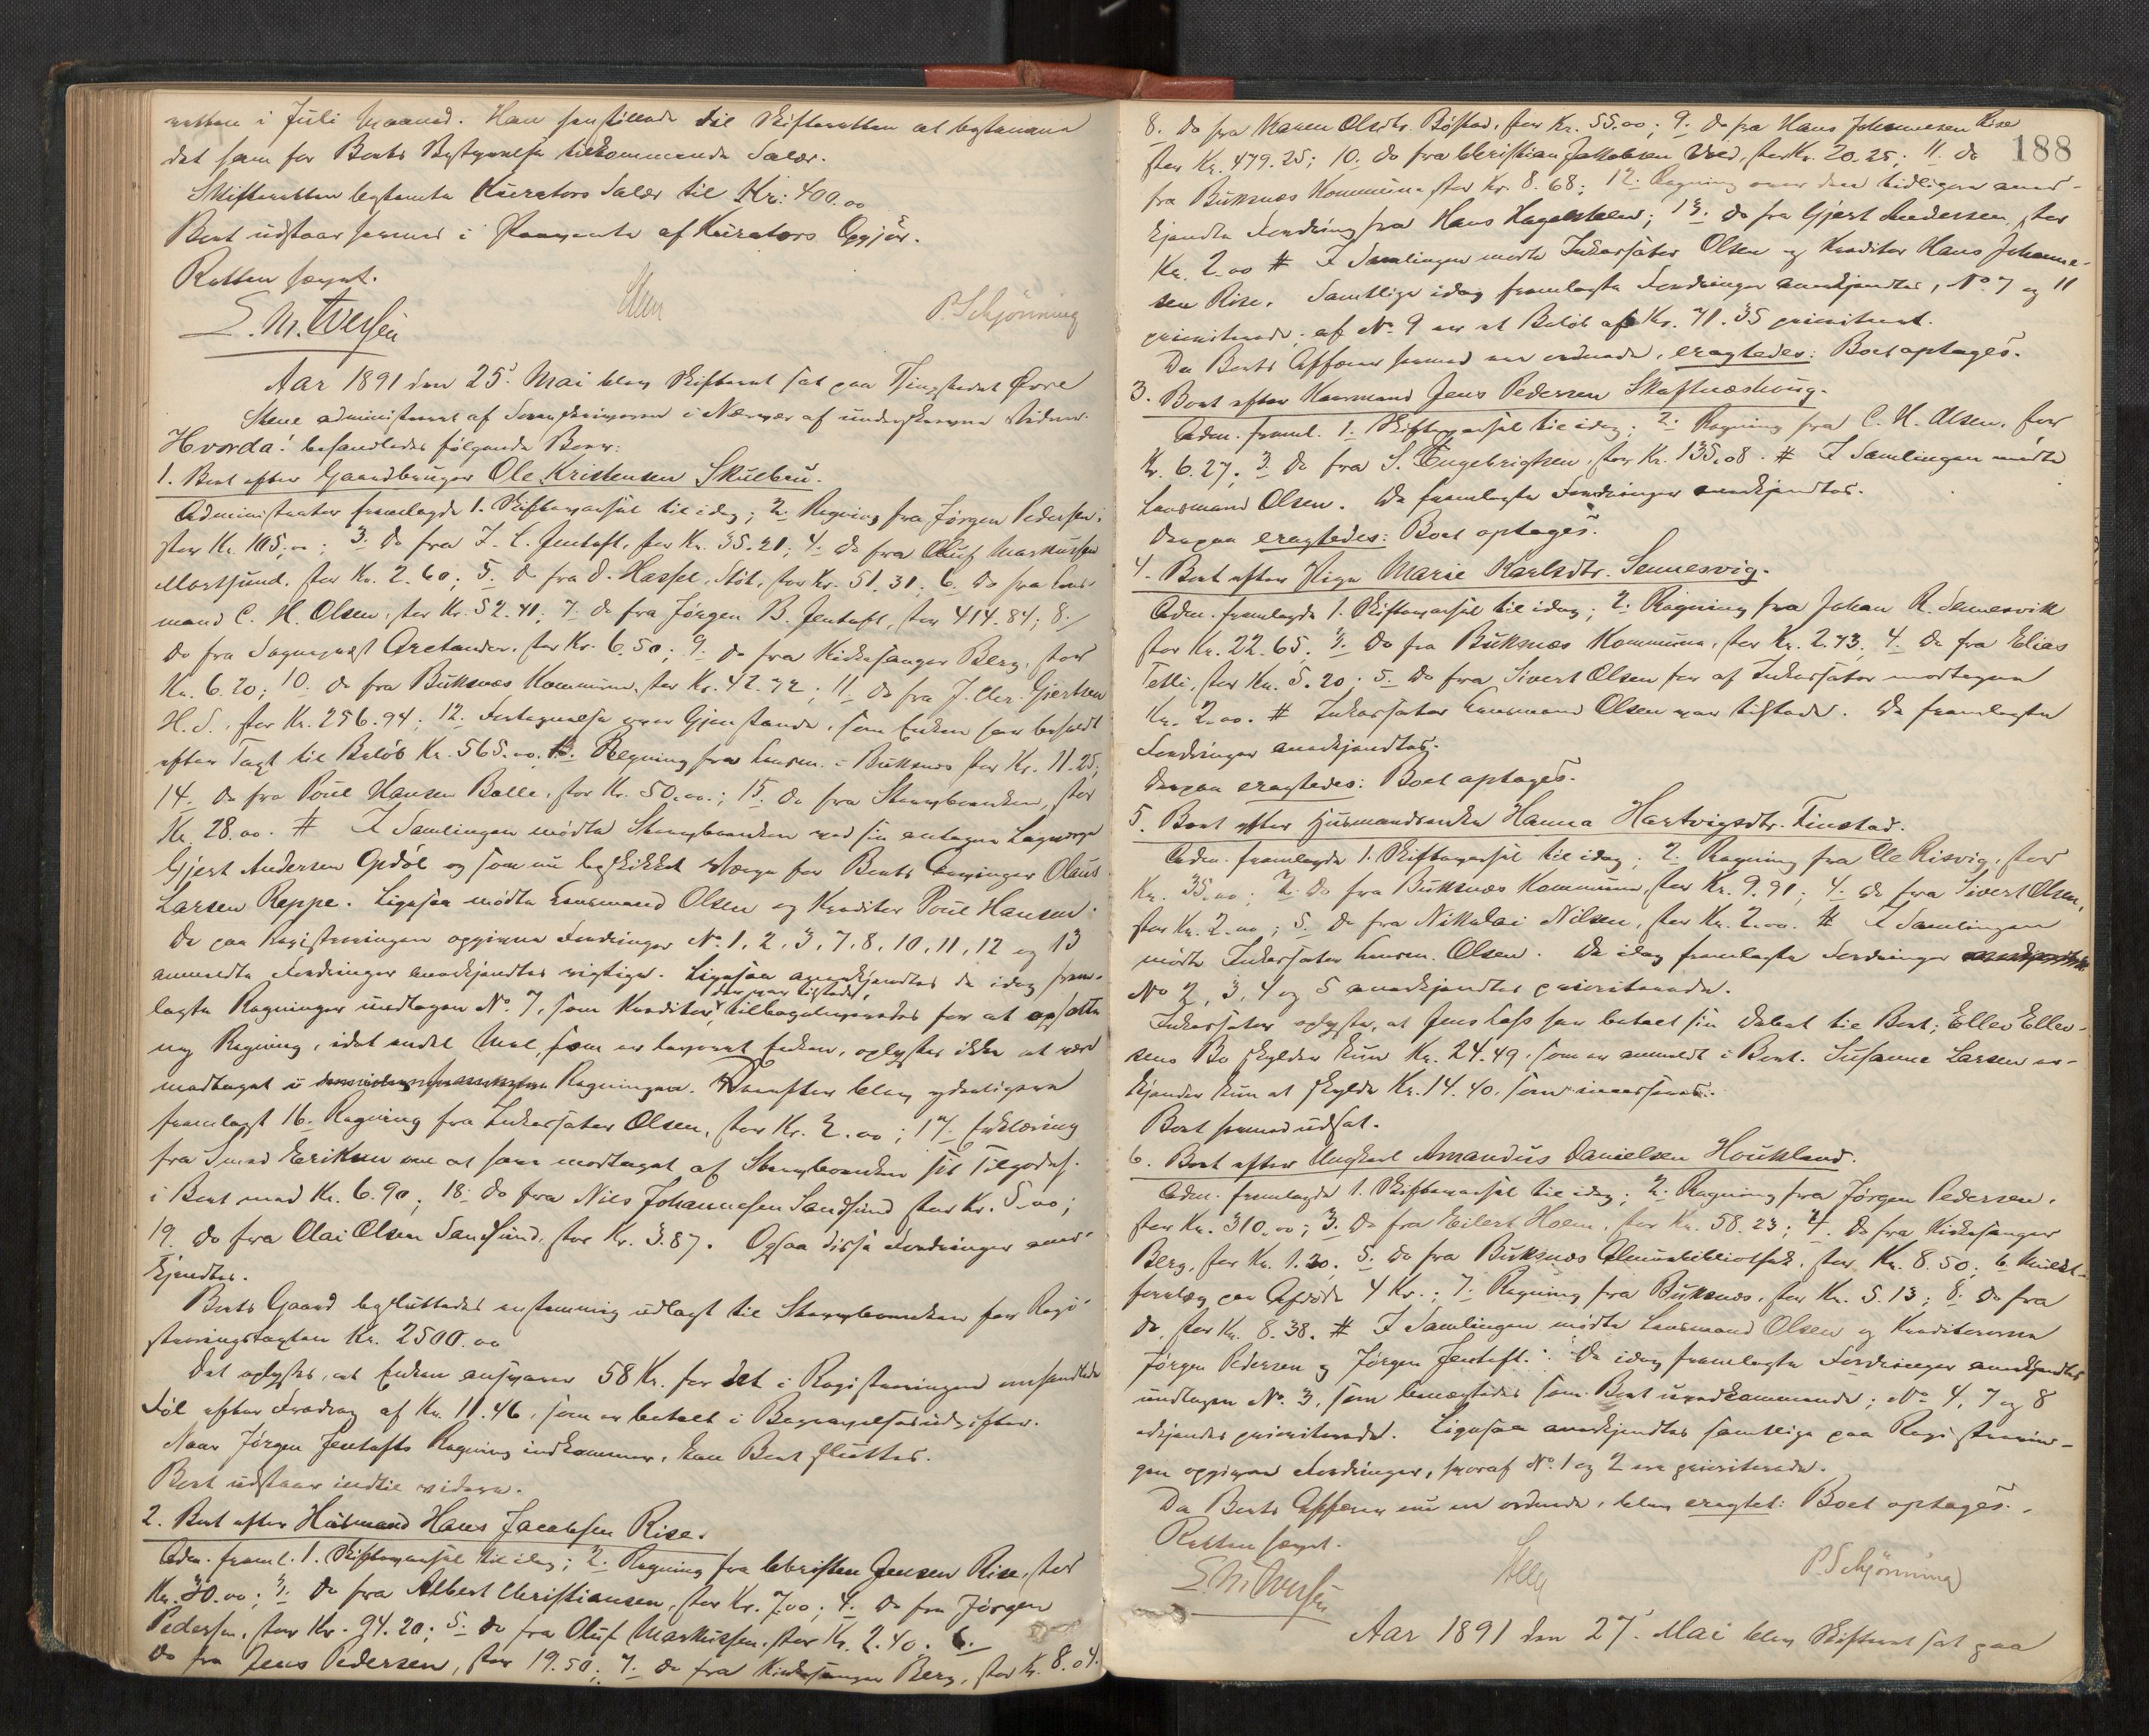 retten i Juli Maaned. Han henstillede til Skifteretten at bestemme
det ham for Boets Bestyrelse tilkommende Salær.
Skifteretten bestemte Kurators Salær til Kr. 400.00
Boet udstaar hermed i Paavente af Kurators Opgjør.
Retten hævet.
E. M. Iversen P. Schjönning
Aar 1891 den 25. Mai blev Skifteret sat paa Thingstedet Øvre
Stene administreret af Sorenskriveren i Nærvær af underskrevne Vidner.
Hvorda! behandledes følgende Boer:
1. Boet efter Gaardbruger Ole Kristensen Skulbru.
Administrator fremlagde 1. Skiftevarsel til idag; 2. Regning fra Jørgen Pedersen,
stor Kr. 105.00; 3. Do fra J. L. Jentoft, stor Kr. 35.21; 4. Do fra Oluf Markussen
Mortsund, stor Kr. 2.60; 5. Do fra D. Hassel, Stöt, stor Kr. 51.31; 6. Do fra Lens-
mand C. H. Olsen, stor Kr. 52.41; 7. Do fra Jørgen B. Jentoft, stor 414.84; 8.
Do fra Sogneprest Arctander, stor Kr. 6.50; 9. Do fra Kirkesanger Berg, stor
Kr. 6.20; 10. Do fra Buksnæs Kommune, stor Kr. 42.72; 11. Do fra J. Chr. Gjertsen
H. S., stor Kr. 256.94; 12. Fortegnelse over Gjenstande, som Enken har beholdt
efter Taxt til Beløb Kr. 565.00. 13. Regning fra Lensm. i Buksnæs stor Kr. 11.25;
14. Do fra Poul Hansen Balle, stor Kr. 50.00.; 15. Do fra Stervboenken, stor
Kr. 28.00. # I Samlingen mødte Stervboenken med sin antagne Lagværge
Gjert Andersen Opdöl og som nu beskikket Værge for Boets Arvinger Olaus
Larsen Reppe. Ligesaa mødte Lensmand Olsen og Kreditor Poul Hansen.
De paa Registreringen opgivne Fordringer No. 1, 2, 3, 7, 8, 10, 11, 12 og 13
anmeldte Fordringer anerkjendtes rigtige. Ligesaa anerkjendtes de idag frem-
lagte Regninger undtagen No. 7, som Kreditor, der var tilstede, tilbageleveredes for at opsætte
ny Regning, idet endel Mel, som er leveret Enken, oplystes ikke at være
medtaget i Regningen. Derefter blev yderligere
fremlagt 16. Regning fra Inkassator Olsen, stor Kr. 2.00; 17. Erklæring
fra Smed Eriksen om at have modtaget af Stervboenken sit Tilgodeh.
i Boet med Kr. 6.90; 18. Do fra Nils Johannesen Sandsund stor Kr. 5.00;
19. Do fra Olai Olsen Sandsund, stor Kr. 3.87. Ogsaa disse Fordringer aner-
kjendtes.
Boets Gaard besluttedes enstemmig udlagt til Stervboenken for Regi-
streringstaxten Kr. 2500.00
Det oplystes, at Enken ansvarer 58 Kr. for det i Registreringen omhandlede
Föl efter Fradrag af Kr. 11.46, som er betalt i Begravelsesudgifter.
Naar Jørgen Jentofts Regning indkommer, kan Boet sluttes.
Boet udstaar indtil videre.
2. Boet efter Husmand Hans Jacobsen Rise.
Adm. freml. 1. Skiftevarsel til idag; 2. Regning fra Christen Jensen Rise, stor
Kr. 30.00; 3. Do fra Albert Christiansen, stor Kr. 7.00; 4. Do fra Jørgen
Pedersen, stor Kr. 94.20; 5. Do fra Oluf Markussen, stor Kr. 2.40. 6.
Do fra Jens Pedersen, stor 19.50; 7. Do fra Kirkesanger Berg, stor Kr. 8.04.
188
8. Do fra Karen Olsdtr. Böstad, stor Kr. 55.00; 9. Do fra Hans Johannesen Rise
stor Kr. 479.25; 10. Do fra Christian Jakobsen Vred, stor Kr. 20.25; 11. Do
fra Buksnæs Kommune stor Kr. 8.68; 12. Regning over den tidligere aner-
kjendte Fordring fra Hans Hagerstolen; 13. Do fra Gjert Andersen, stor
Kr. 2.00 # I Samlingen mødte Inkassator Olsen og Kreditor Hans Johanne-
sen Rise. Samtlige idag fremlagte Fordringer anerkjendtes, No 7 og 11
prioriterede; af No. 9 er et Beløb af Kr. 71.35 prioriteret.
Da Boets Affærer hermed er ordnede, eragtedes: Boet optages.
3. Boet efter Kaarmand Jens Pedersen Skaftnæshoug.
Adm. freml. 1. Skiftevarsel til idag; 2. Regning fra C. H. Olsen, stor
Kr. 6.27; 3. Do fra S. Engebrigtsen, stor Kr. 135.08. # I Samlingen mødte
Lensmand Olsen. De fremlagte Fordringer anerkjendtes.
Derpaa eragtedes: Boet optages.
4. Boet efter Pige Marie Karlsdtr. Sennesvig.
Adm. fremlagde 1. Skiftevarsel til idag; 2. Regning fra Johan R. Sennesvik
stor Kr. 22.65; 3. Do fra Buksnæs Kommune, stor Kr. 2.73; 4. Do fra Elias
Tetli, stor Kr. 5.20; 5. Do fra Sivert Olsen for af Inkassator modtagne
Kr. 2.00. # Inkassator Lensmand Olsen var tilstede. De fremlagte
Fordringer anerkjendtes.
Derpaa eragtedes: Boet optages.
5. Boet efter Husmandsenke Hanna Hartvigsdtr. Finstad.
Adm. fremlagde 1. Skiftevarsel til idag; 2. Regning fra Ole Risvig, stor
Kr. 35.00; 3. Do fra Buksnæs Kommune, stor Kr. 9.91; 4. Do fra Sivert Olsen,
stor Kr. 2.00; 5. Do fra Nikolai Nilsen, stor Kr. 2.00. # I Samlingen
mødte Inkassator Lensm. Olsen. De idag fremlagte Fordringer
No 2, 3, 4 og 5 anerkjendtes prioriterede.
Inkassator oplyste, at Jens Lass har betalt sin Debet til Boet; Ellev Ellev-
sens Bo skylder kun Kr. 24.49, som er anmeldt i Boet. Susanne Larsen er-
kjender kun at skylde Kr. 14.40, som incasseres.
Boet hermed udsat.
6. Boet efter Ungkarl Amandus Danielsen Houkland.
Adm. fremlagde 1. Skiftevarsel til idag; 2. Regning fra Jørgen Pedersen,
stor Kr. 310.00; 3. Do fra Eilert Holm, stor Kr. 58.23; 4. Do fra Kirkesanger
Berg, stor Kr. 1.20; 5. Do fra Buksnæs Almuebibliothek, stor Kr. 8.50; 6. Mulkt-
forelæg paa Afdöde 4 Kr.; 7. Regning fra Buksnæs, stor Kr. 5.13; 8. Do fra
Do, stor Kr. 8.38. # I Samlingen mødte Lensmand Olsen og Kreditorerne
Jørgen Pedersen og Jørgen Jentoft. De idag fremlagte Fordringer anerkjendtes
undtagen No. 3, som benægtedes som Boet uvedkommende; No. 4, 7 og 8
erkjendes prioriterede. Ligesaa anerkjendtes samtlige paa Registrerin-
gen opgivne Fordringer, hvoraf No. 1 og 2 ere prioriterede.
Da Boets Affærer nu er ordnede, blev eragtet: Boet optages.
Retten hævet.
E. M. Iversen P. Schjönning
Aar 1891 den 27. Mai blev Skifteret sat paa